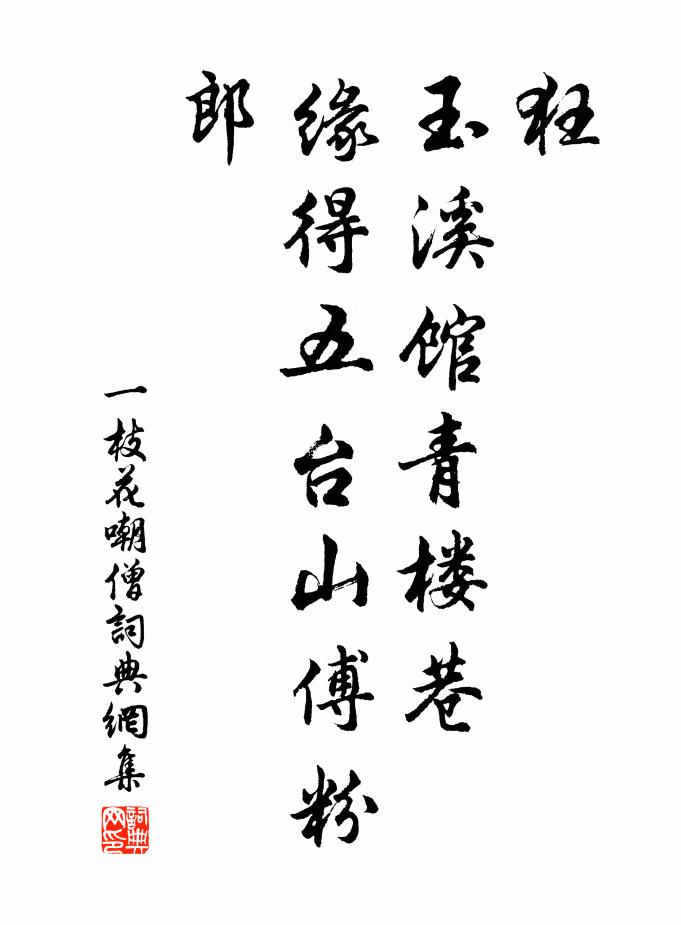 狂
玉溪馆青楼巷
缘得五台山傅粉
郎
一枝花嘲僧詞典網集
詞典网印